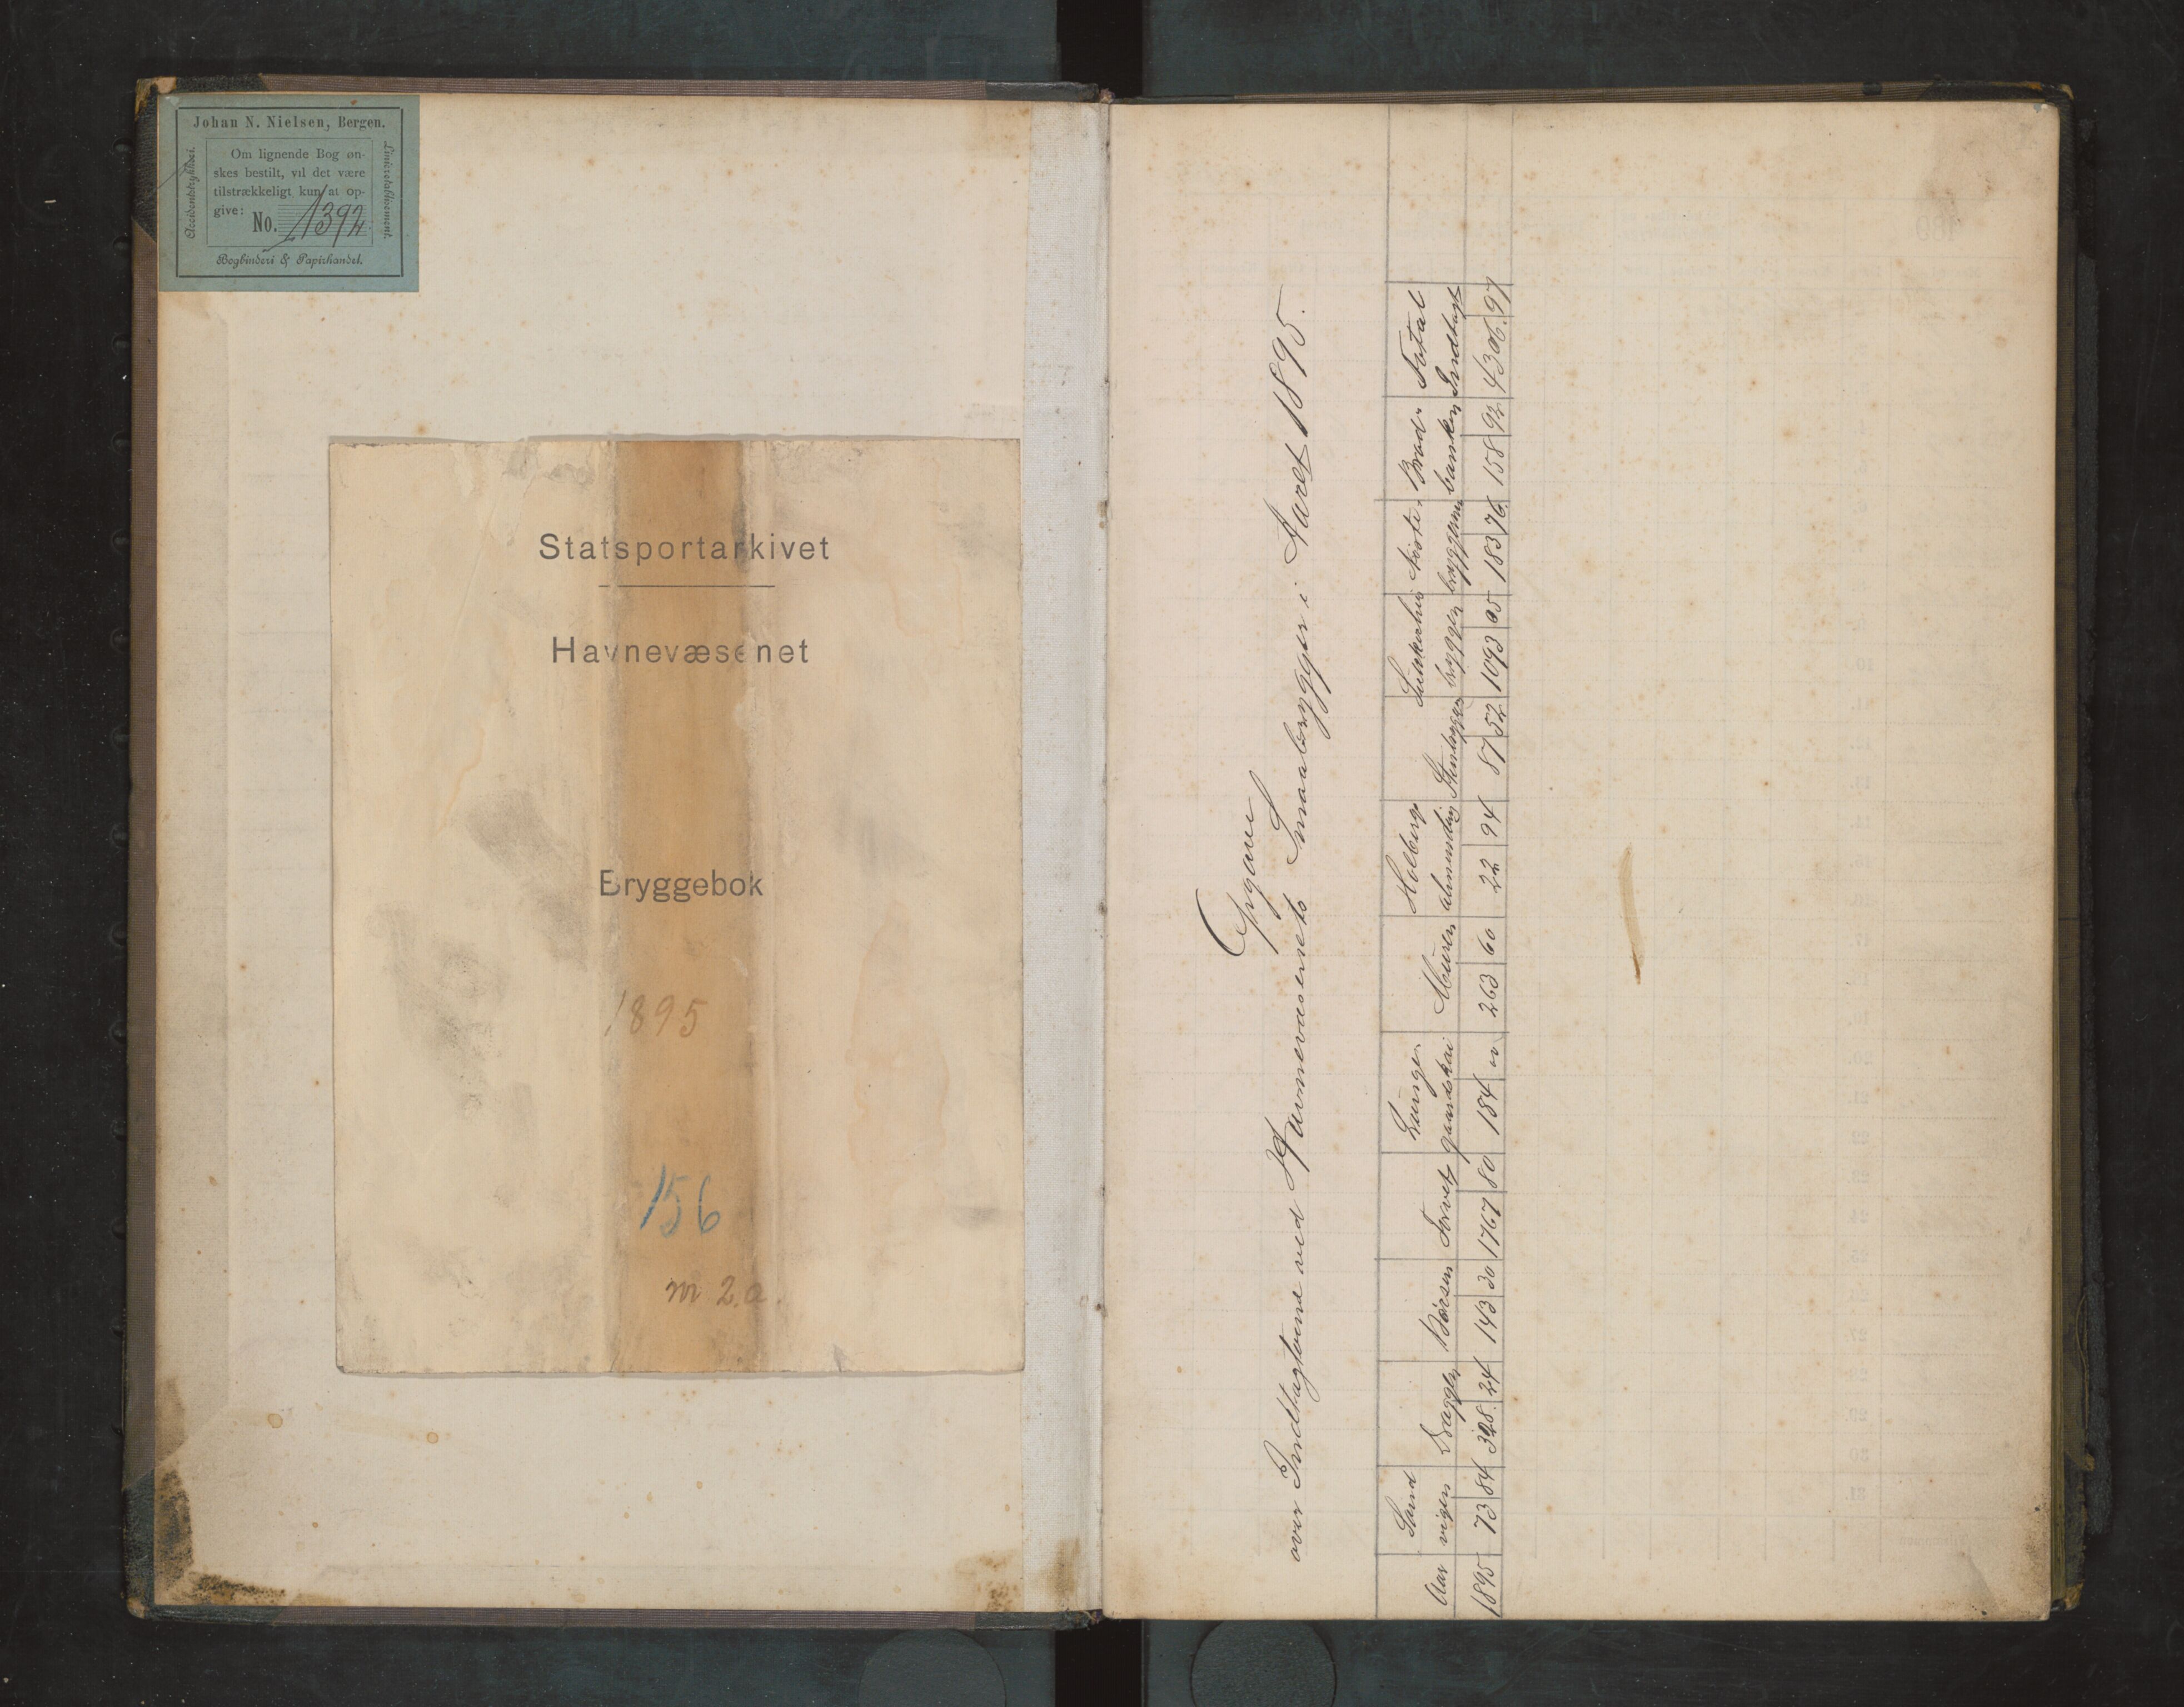 Johan N. Nielsen, Bergen.
Accidenttrykkeri.
Om lignende Bog øn-
skes bestilt, vil det være
tilstrækkeligt kun at op-
give:
No. 1392
Linieretablissement.
Bogbinderi & Papirhandel.
Statsportarkivet
Havnevæsenet
Bryggebok
1895
156
nr 2.a.
Opgave
over Indtægterne ved Havnevæsenets Smaabrygger i Aaret 1895.
Aar Sandvigen Dræggen Børsen Torvet Lungegaardskai Muren Holbergsalmending Stenbryggen Sukkerhusbryggen Nøstebryggerne Bradbænken Total Indtægt
1895 73 84 328. 24 143 30 1767 80 184 " 263 60 22 94 87 52 1093 05 183 76 158 92 4306. 97